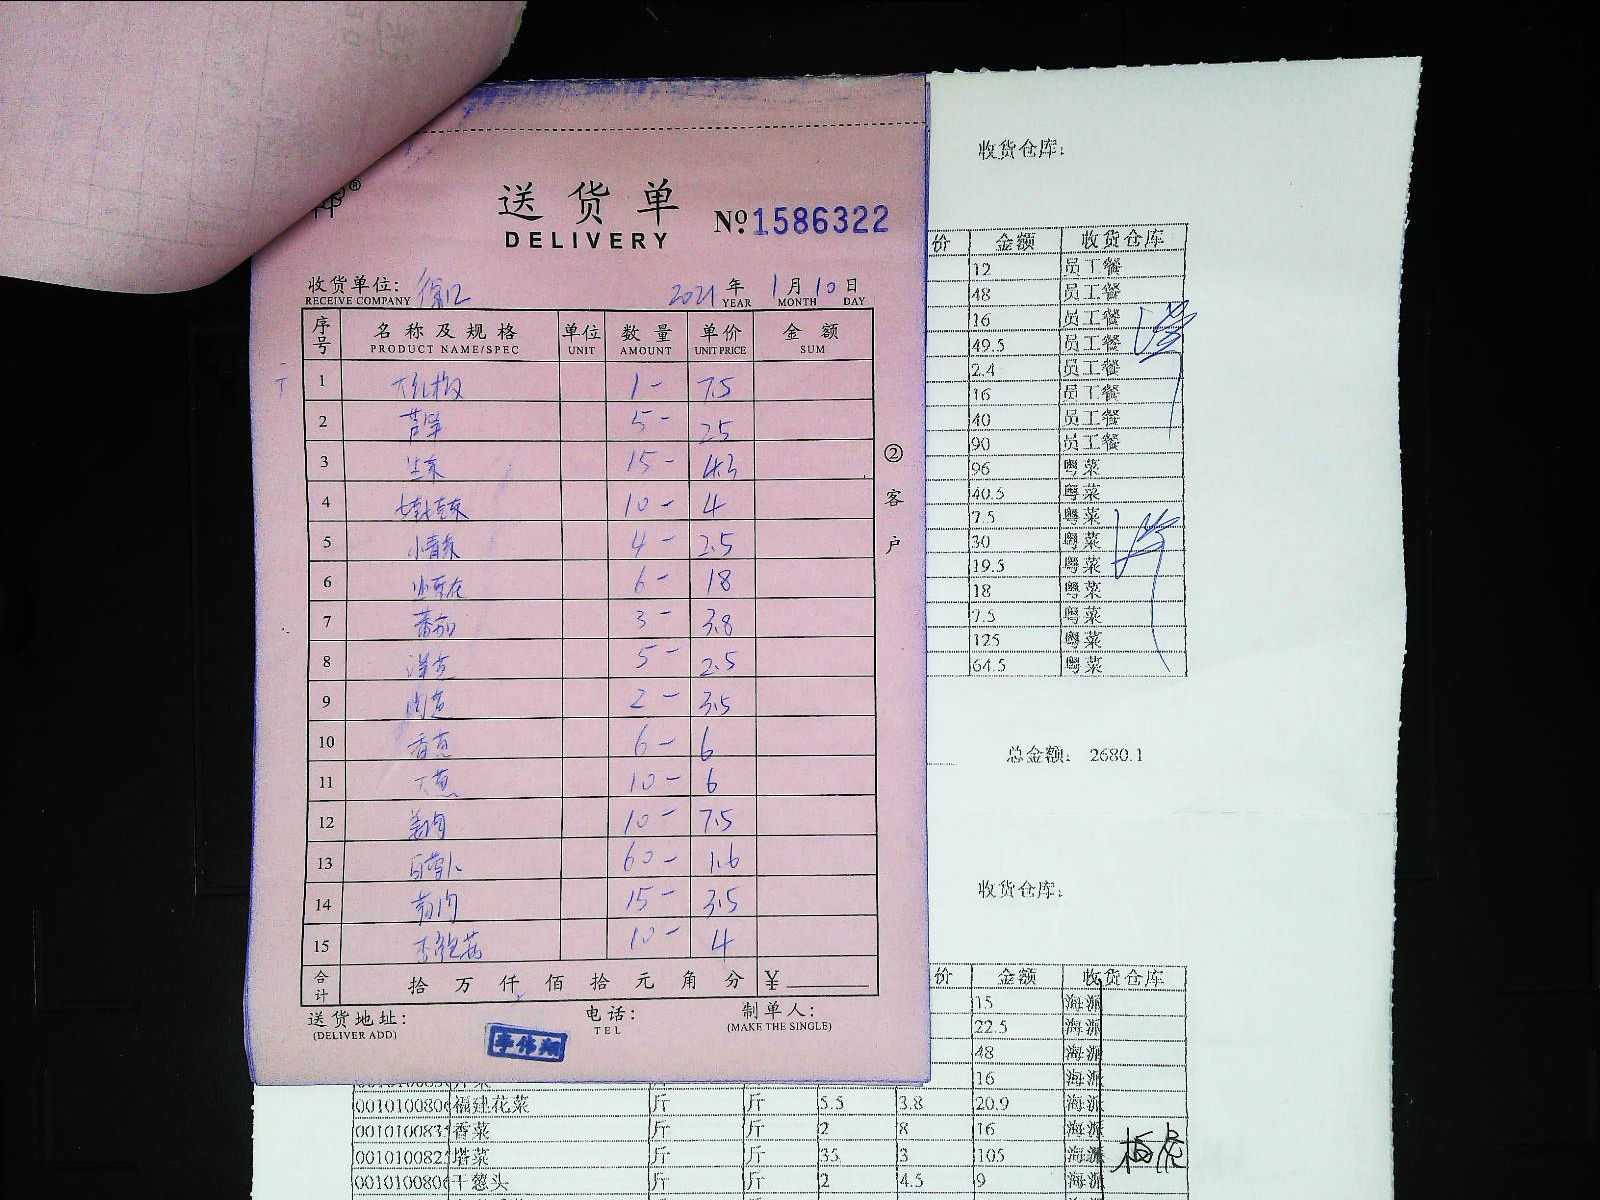 送货单
DELIVERY
№ 1586322
收货单位: 徐汇
RECEIVE COMPANY
2021 年 1 月 10 日
YEAR MONTH DAY
序号 名称及规格 单位 数量 单价 金额
PRODUCT NAME/SPEC UNIT AMOUNT UNIT PRICE SUM
1 大红椒 1- 7.5
2 芦笋 5- 25
3 生菜 15- 4.3
4 娃娃菜 10- 4
5 小青菜 4- 2.5
6 6- 18
7 番茄 3- 3.8
8 洋葱 5- 2.5
9 2- 3.5
10 香葱 6- 6
11 大葱 10- 6
12 姜肉 10- 7.5
13 白萝卜 60- 1.6
14 15- 3.5
15 杏鲍菇 10- 4
合计 拾万仟佰拾元角分 ¥
送货地址: 电话: 制单人:
(DELIVER ADD) TEL (MAKE THE SINGLE)
李伟翔
②客户
收货仓库:
价 金额 收货仓库
12 员工餐
48 员工餐
16 员工餐
49.5 员工餐
2.4 员工餐
16 员工餐
40 员工餐
90 员工餐
96 粤菜
40.5 粤菜
7.5 粤菜
30 粤菜
19.5 粤菜
18 粤菜
7.5 粤菜
125 粤菜
64.5 粤菜
总金额: 2680.1
收货仓库:
价 金额 收货仓库
15 海派
22.5 海派
48 海派
16 海派
0010100806 福建花菜 斤 斤 5.5 3.8 20.9 海派
001010083 香菜 斤 斤 2 8 16 海派
001010082 塔菜 斤 斤 35 3 105 海派
001010080 干葱头 斤 斤 2 4.5 9 海派